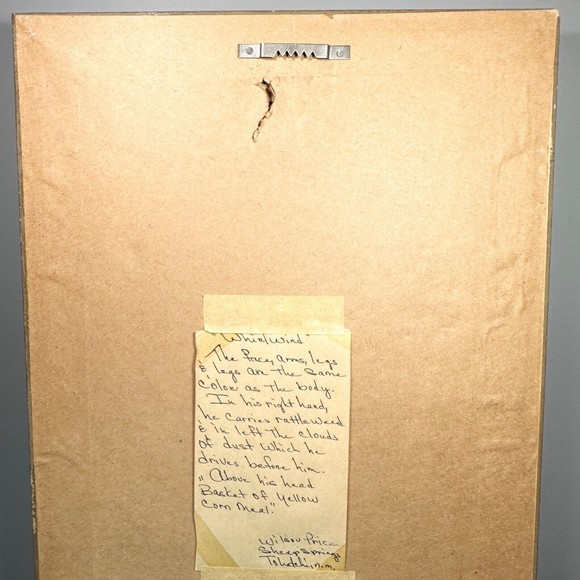 "Whirlwind"
The face, arms, legs
& legs are the same
Color as the body.
In his right hand,
he carries rattleweed
& in left the clouds
of dust which he
drives before him.
"Above his head
Basket of yellow
Corn meal."
Wilson Price
Sheep Springs
Tohatchi, n.m.